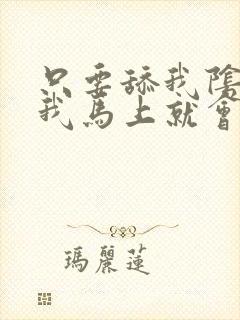 只要舔我陰
我馬上就會
瑪麗蓮